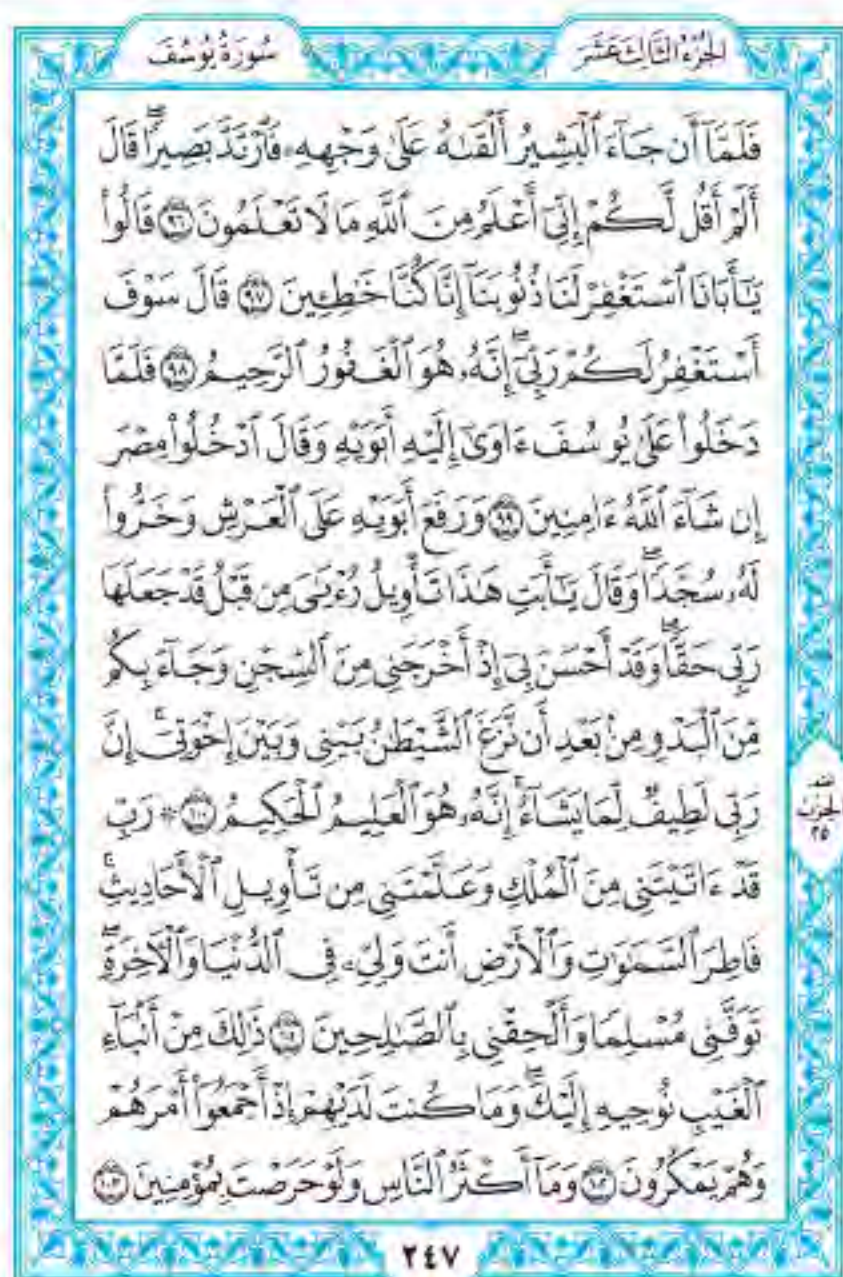 الجُزْءُ الثَّالِثَ عَشَرَ
سُورَةُ يُوسُفَ
فَلَمَّآ أَن جَآءَ ٱلْبَشِيرُ أَلْقَىٰهُ عَلَىٰ وَجْهِهِۦ فَٱرْتَدَّ بَصِيرًا ۖ قَالَ
أَلَمْ أَقُل لَّكُمْ إِنِّىٓ أَعْلَمُ مِنَ ٱللَّهِ مَا لَا تَعْلَمُونَ ٩٦ قَالُوا۟
يَٰٓأَبَانَا ٱسْتَغْفِرْ لَنَا ذُنُوبَنَآ إِنَّا كُنَّا خَٰطِـِٔينَ ٩٧ قَالَ سَوْفَ
أَسْتَغْفِرُ لَكُمْ رَبِّىٓ ۖ إِنَّهُۥ هُوَ ٱلْغَفُورُ ٱلرَّحِيمُ ٩٨ فَلَمَّا
دَخَلُوا۟ عَلَىٰ يُوسُفَ ءَاوَىٰٓ إِلَيْهِ أَبَوَيْهِ وَقَالَ ٱدْخُلُوا۟ مِصْرَ
إِن شَآءَ ٱللَّهُ ءَامِنِينَ ٩٩ وَرَفَعَ أَبَوَيْهِ عَلَى ٱلْعَرْشِ وَخَرُّوا۟
لَهُۥ سُجَّدًا ۖ وَقَالَ يَٰٓأَبَتِ هَٰذَا تَأْوِيلُ رُءْيَٰىَ مِن قَبْلُ قَدْ جَعَلَهَا
رَبِّى حَقًّا ۖ وَقَدْ أَحْسَنَ بِىٓ إِذْ أَخْرَجَنِى مِنَ ٱلسِّجْنِ وَجَآءَ بِكُم
مِّنَ ٱلْبَدْوِ مِنۢ بَعْدِ أَن نَّزَغَ ٱلشَّيْطَٰنُ بَيْنِى وَبَيْنَ إِخْوَتِىٓ ۚ إِنَّ
رَبِّى لَطِيفٌ لِّمَا يَشَآءُ ۚ إِنَّهُۥ هُوَ ٱلْعَلِيمُ ٱلْحَكِيمُ ١٠٠ ۞ رَبِّ
قَدْ ءَاتَيْتَنِى مِنَ ٱلْمُلْكِ وَعَلَّمْتَنِى مِن تَأْوِيلِ ٱلْأَحَادِيثِ ۚ
فَاطِرَ ٱلسَّمَٰوَٰتِ وَٱلْأَرْضِ أَنتَ وَلِىِّۦ فِى ٱلدُّنْيَا وَٱلْءَاخِرَةِ ۖ
تَوَفَّنِى مُسْلِمًا وَأَلْحِقْنِى بِٱلصَّٰلِحِينَ ١٠١ ذَٰلِكَ مِنْ أَنۢبَآءِ
ٱلْغَيْبِ نُوحِيهِ إِلَيْكَ ۖ وَمَا كُنتَ لَدَيْهِمْ إِذْ أَجْمَعُوٓا۟ أَمْرَهُمْ
وَهُمْ يَمْكُرُونَ ١٠٢ وَمَآ أَكْثَرُ ٱلنَّاسِ وَلَوْ حَرَصْتَ بِمُؤْمِنِينَ ١٠٣
نصف
الحزب
٢٥
٢٤٧